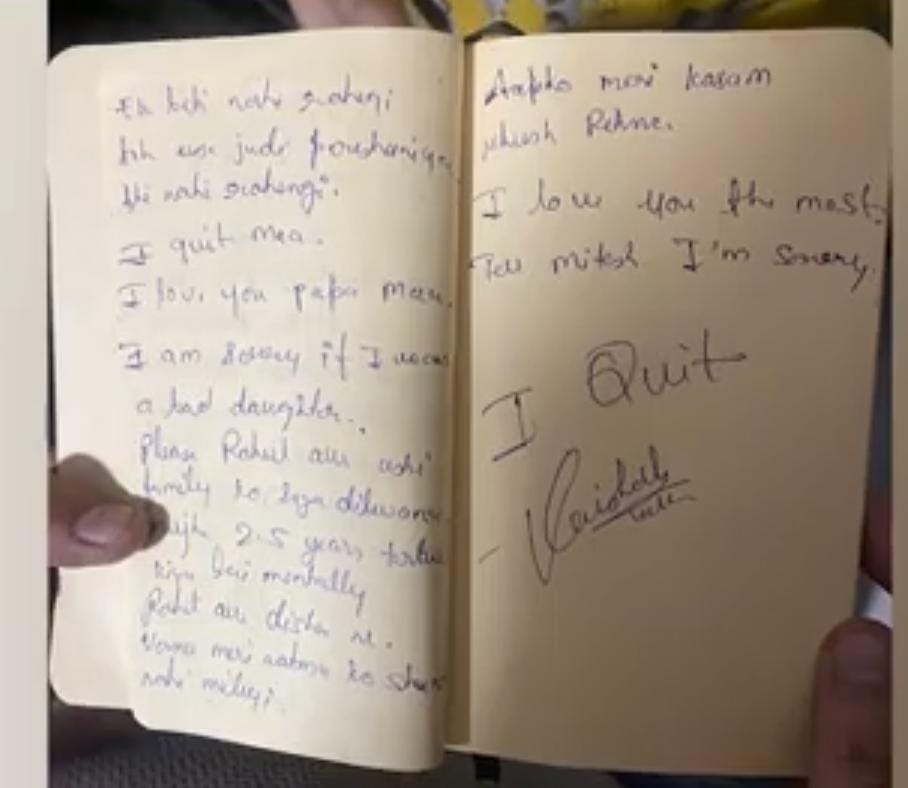 Ek beti nahi rahegi
toh usse judi pareshaniyan
bhi nahi rahengi.
I quit maa.
I love you papa maa.
I am sorry if I was
a bad daughter.
Please Rahul aur uski
family ko saja dilwana
mujhe 2.5 years torture
kiya hai mentally
Rahul aur disha ne.
Varna meri aatma ko shanti
nahi milegi.
Aapko meri kasam
khush Rehna.
I love you the most.
Tell mitesh I'm sorry.
I Quit